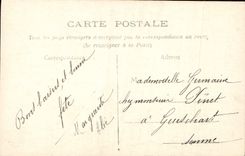 CARTE POSTALE
Tous les pays étrangers n'acceptent pas la correspondance au recto
(Se renseigner à la Poste)
Correspondance
Adresse
Bons baisers et bonne
fête
Marguerite
Mademoiselle Germaine
chez monsieur Pinet
à Gueschart
Somme